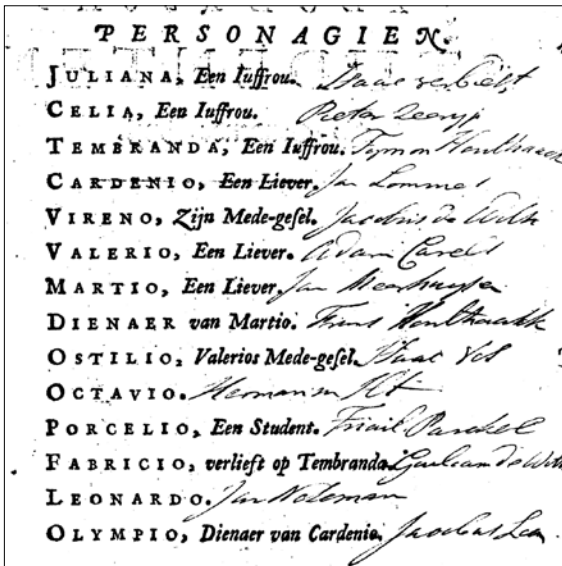 PERSONAGIEN.
JULIANA, Een Iuffrou. Isaac verbiest
CELIA, Een Iuffrou. Pieter Zeerijp
TEMBRANDA, Een Iuffrou. Tymon Houthaack
CARDENIO, Een Liever. Jan Lemmet
VIRENO, Zijn Mede-gesel. Jacobus de Wilde
VALERIO, Een Liever. Adam Carels
MARTIO, Een Liever. Jan Meerhuysen
DIENAER van Martio. Frans Houthaack
OSTILIO, Valerios Mede-gesel. Isaac Vos
OCTAVIO. Hermanus Ilt
PORCELIO, Een Student. Triael Parckel
FABRICIO, verlieft op Tembranda. Guilliam de Wilt
LEONARDO. Jan Noseman
OLYMPIO, Dienaer van Cardenio. Jacobus